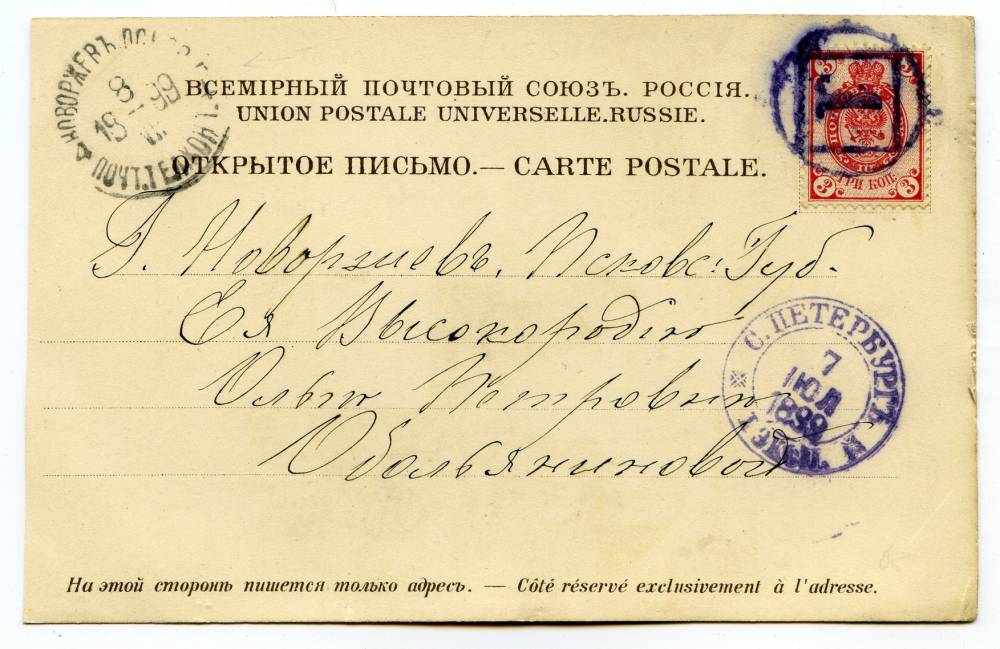 НОВОРЖЕВЪ
8
1899
ПОЧТ. ТЕЛ. КОН.
ВСЕМІРНЫЙ ПОЧТОВЫЙ СОЮЗЪ. РОССІЯ.
UNION POSTALE UNIVERSELLE. RUSSIE.
ОТКРЫТОЕ ПИСЬМО. — CARTE POSTALE.
1
3 ТРИ КОП. 3
Г. Новоржевъ, Псковс: Губ.
Ея Высокородію
Ольгѣ Петровнѣ
Обольяниновой
С. ПЕТЕРБУРГЪ
7
ІЮЛ
1899
1 ЭКСП.
На этой сторонѣ пишется только адресъ. — Côté réservé exclusivement à l'adresse.